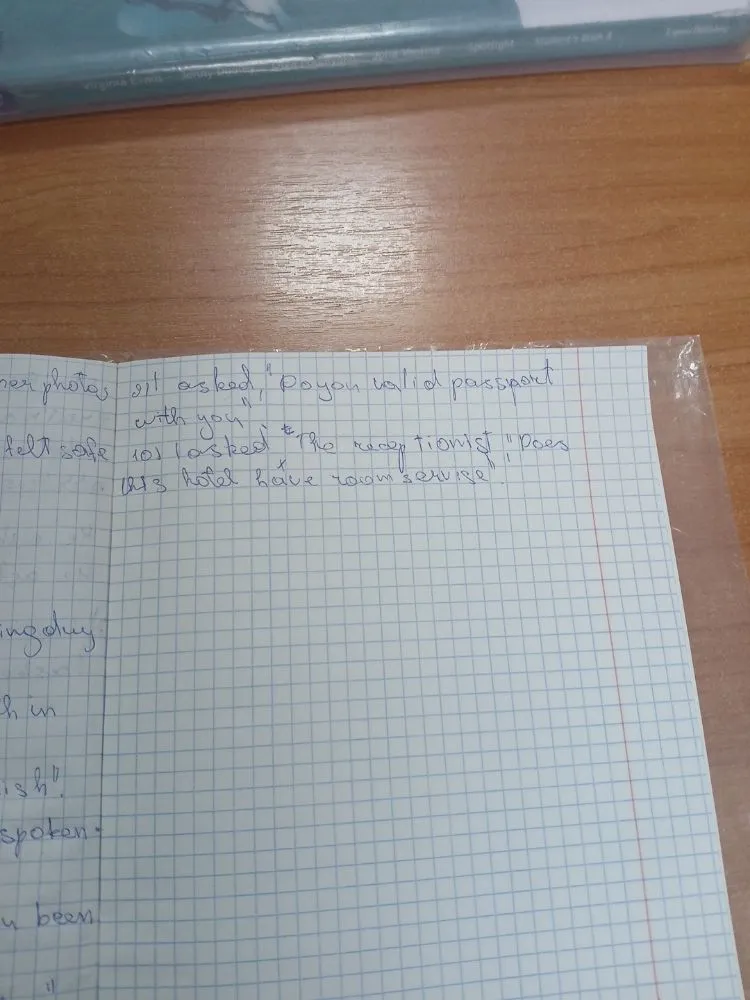 Virginia Evans Jenny Dooley Spotlight Student's Book
ner photos
felt safe
ing
h in
ish".
spoken.
u been
"
9) I asked, "Do you valid passport
with you"
10) I asked "The receptionist, "Does
this hotel have room servise".